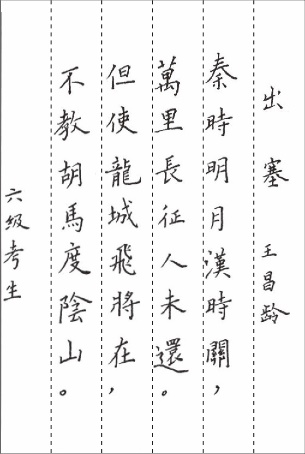 出塞 王昌龄
秦時明月漢時關，
萬里長征人未還。
但使龍城飛將在，
不教胡馬度陰山。
六级考生